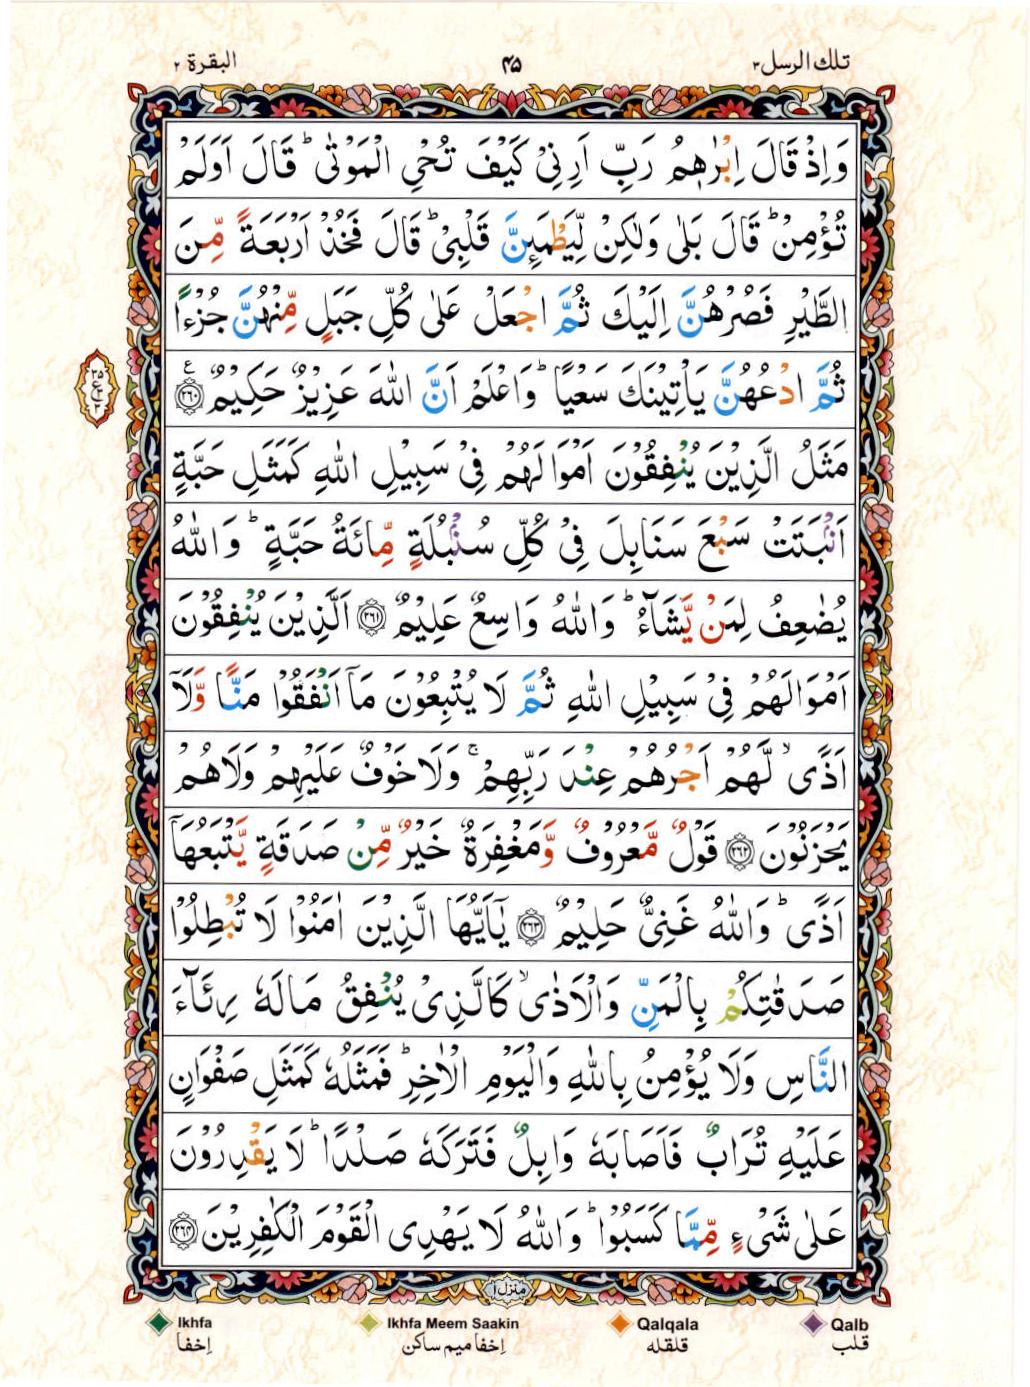 تلك الرسل ٣
۴۵
البقرة ٢
وَاِذْ قَالَ اِبْرٰهٖمُ رَبِّ اَرِنِیْ كَیْفَ تُحْیِ الْمَوْتٰی ؕ قَالَ اَوَلَمْ
تُؤْمِنْ ؕ قَالَ بَلٰی وَلٰكِنْ لِّیَطْمَىِٕنَّ قَلْبِیْ ؕ قَالَ فَخُذْ اَرْبَعَةً مِّنَ
الطَّیْرِ فَصُرْهُنَّ اِلَیْكَ ثُمَّ اجْعَلْ عَلٰی كُلِّ جَبَلٍ مِّنْهُنَّ جُزْءًا
ثُمَّ ادْعُهُنَّ یَاْتِیْنَكَ سَعْیًا ؕ وَاعْلَمْ اَنَّ اللّٰهَ عَزِیْزٌ حَكِیْمٌ ﴿۲۶۰﴾ ع
مَثَلُ الَّذِیْنَ یُنْفِقُوْنَ اَمْوَالَهُمْ فِیْ سَبِیْلِ اللّٰهِ كَمَثَلِ حَبَّةٍ
اَنْۢبَتَتْ سَبْعَ سَنَابِلَ فِیْ كُلِّ سُنْۢبُلَةٍ مِّائَةُ حَبَّةٍ ؕ وَاللّٰهُ
یُضٰعِفُ لِمَنْ یَّشَآءُ ؕ وَاللّٰهُ وَاسِعٌ عَلِیْمٌ ﴿۲۶۱﴾ اَلَّذِیْنَ یُنْفِقُوْنَ
اَمْوَالَهُمْ فِیْ سَبِیْلِ اللّٰهِ ثُمَّ لَا یُتْبِعُوْنَ مَاۤ اَنْفَقُوْا مَنًّا وَّلَاۤ
اَذًی ۙ لَّهُمْ اَجْرُهُمْ عِنْدَ رَبِّهِمْ ۚ وَلَا خَوْفٌ عَلَیْهِمْ وَلَا هُمْ
یَحْزَنُوْنَ ﴿۲۶۲﴾ قَوْلٌ مَّعْرُوْفٌ وَّمَغْفِرَةٌ خَیْرٌ مِّنْ صَدَقَةٍ یَّتْبَعُهَاۤ
اَذًی ؕ وَاللّٰهُ غَنِیٌّ حَلِیْمٌ ﴿۲۶۳﴾ یٰۤاَیُّهَا الَّذِیْنَ اٰمَنُوْا لَا تُبْطِلُوْا
صَدَقٰتِكُمْ بِالْمَنِّ وَالْاَذٰی ۙ كَالَّذِیْ یُنْفِقُ مَالَهٗ رِئَآءَ
النَّاسِ وَلَا یُؤْمِنُ بِاللّٰهِ وَالْیَوْمِ الْاٰخِرِ ؕ فَمَثَلُهٗ كَمَثَلِ صَفْوَانٍ
عَلَیْهِ تُرَابٌ فَاَصَابَهٗ وَابِلٌ فَتَرَكَهٗ صَلْدًا ؕ لَا یَقْدِرُوْنَ
عَلٰی شَیْءٍ مِّمَّا كَسَبُوْا ؕ وَاللّٰهُ لَا یَهْدِی الْقَوْمَ الْكٰفِرِیْنَ ﴿۲۶۴﴾
منزل ۱
Ikhfa Ikhfa Meem Saakin Qalqala Qalb
إخفا إخفا ميم ساكن قلقله قلب